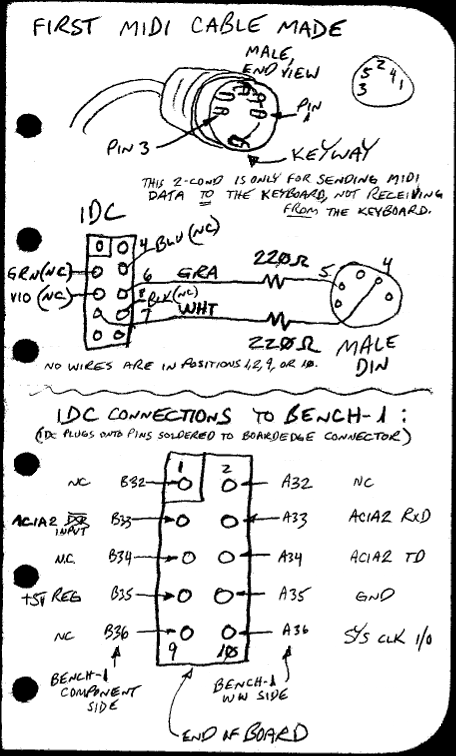 FIRST MIDI CABLE MADE
MALE,
END VIEW
5 2 4 1
3
PIN 3
PIN
1
KEYWAY
THIS 2-COND IS ONLY FOR SENDING MIDI
DATA TO THE KEYBOARD, NOT RECEIVING
FROM THE KEYBOARD.
IDC
4 BLU (NC)
GRN (NC)
6 GRA
220Ω
5
4
VIO (NC)
8 BLK (NC)
7 WHT
220Ω
MALE
DIN
NO WIRES ARE IN POSITIONS 1, 2, 9, OR 10.
IDC CONNECTIONS TO BENCH-1:
(IDC PLUGS ONTO PINS SOLDERED TO BOARDEDGE CONNECTOR)
1 2
NC B32 A32 NC
ACIA2 B33 A33 ACIA2 RXD
INPUT
N.C. B34 A34 ACIA2 TD
+5V REG B35 A35 GND
NC B36 A36 SYS CLK I/O
9 10
BENCH-1
COMPONENT
SIDE
BENCH-1
WW SIDE
END OF BOARD